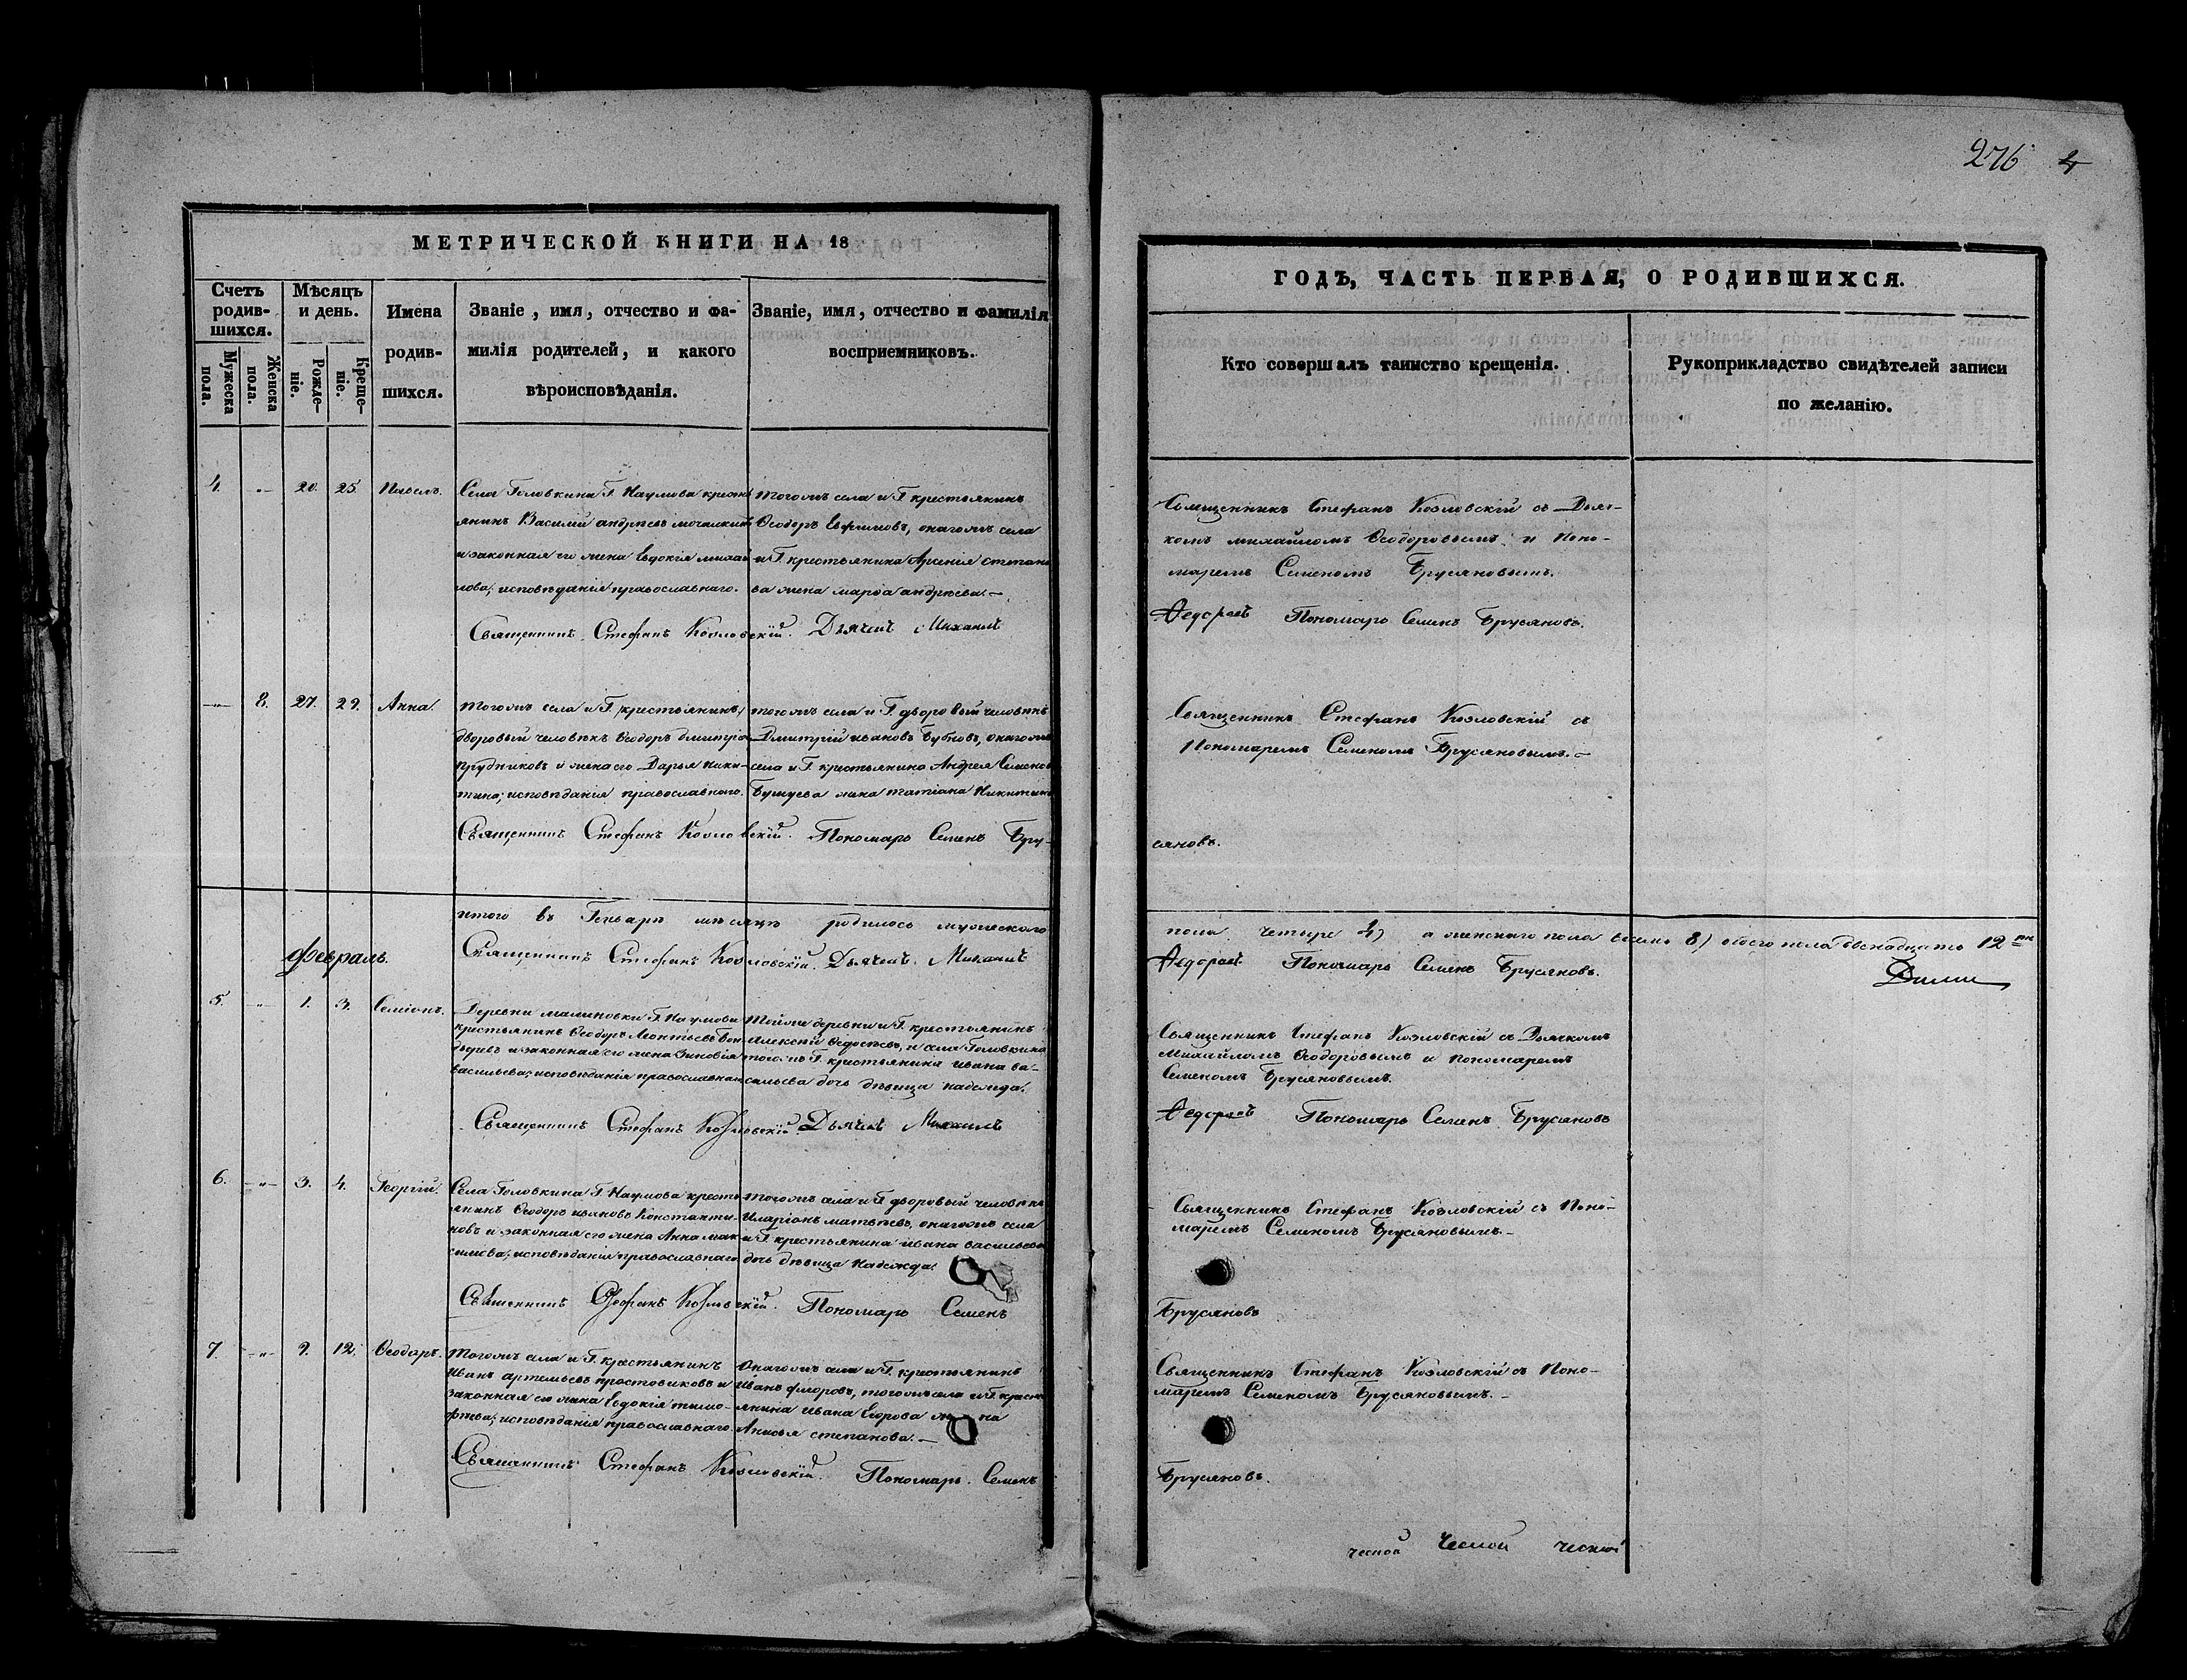 276 4
МЕТРИЧЕСКОЙ КНИГИ НА 18
Счетъ родив-шихся.
Мужеска пола.
Женска пола.
Мѣсяцъ и день.
Рожде-ніе.
Креще-ніе.
Имена родив-шихся.
Званіе, имя, отчество и фа-
милія родителей, и какого
вѣроисповѣданія.
Званіе, имя, отчество и фамилія
восприемниковъ.
ГОДЪ, ЧАСТЬ ПЕРВАЯ, О РОДИВШИХСЯ.
Кто совершалъ таинство крещенія.
Рукоприкладство свидѣтелей записи
по желанію.
4. -"- 20. 25. Павелъ.
Села Головкина Г. Наумова крестъ
янинъ Василій андрѣевъ
и законная его жена Евдокія михай
лова; исповѣданія православнаго.
тогожъ села и Г. крестьянинъ
Ѳеодоръ Ефимовъ, онагожъ села
и Г. крестьянина Арсенія степано
ва жена марѳа андрѣева.—
Священникъ Стефанъ Козловскій съ Дьяч-
комъ михайломъ Ѳеодоровымъ и Поно-
маремъ Семеномъ Брусяновымъ.
Священникъ Стефанъ Козловскій. Дьячекъ Михаилъ
Ѳедоровъ Пономарь Семенъ Брусяновъ.
-"- 8. 27. 29. Анна.
тогожъ села и Г. /крестьянинъ/
дворовый человѣкъ Ѳеодоръ дмитріевъ
Прудниковъ и жена его Дарья ники-
тина; исповѣданія православнаго.
тогожъ села и Г. дворовый человѣкъ
Дмитрій ивановъ Бубновъ, онагожъ
села и Г. крестьянина Андрея Семенова
жена татіана Никитина
Священникъ Стефанъ Козловскій съ
Пономаремъ Семеномъ Брусяновымъ.—
Священникъ Стефанъ Козловскій. Пономарь Семенъ Бру-
сяновъ.
итого въ Генварѣ мѣсяцѣ родилось мужескаго
пола четыре 4) а женскаго пола восемь 8) обоего пола двенадцать 12
Священникъ Стефанъ Козловскій. Дьячекъ Михаилъ
Ѳедоровъ Пономарь Семенъ Брусяновъ.
Февраль.
5. -"- 1. 3. Семіонъ.
Деревни малиновки Г. Наумова
крестьянинъ Ѳеодоръ Леонтьевъ Бон
даревъ и законная его жена Зиновія
васильева; исповѣданія православнаго
тойже деревни и Г. крестьянинъ
Алексѣй Ѳедосѣевъ, и села Головкина
тогожъ Г. крестьянина ивана ва-
сильева дочь дѣвица надежда.
Священникъ Стефанъ Козловскій съ Дьячкомъ
Михайломъ Ѳеодоровымъ и пономаремъ
Семеномъ Брусяновымъ.
Священникъ Стефанъ Козловскій. Дьячекъ Михаилъ
Ѳедоровъ Пономарь Семенъ Брусяновъ
6. -"- 3. 4. Георгій.
Села Головкина Г. Наумова кресть
янинъ Ѳеодоръ ивановъ Константи-
новъ и законная его жена Анна мак
симова; исповѣданія православнаго
тогожъ села и Г. дворовый человѣкъ
Иларіонъ матвѣевъ, онагожъ села
и Г. крестьянина ивана васильева
дочь дѣвица Надежда.
Священникъ Стефанъ Козловскій съ Поно-
маремъ Семеномъ Брусяновымъ.—
Священникъ Стефанъ Козловскій. Пономарь Семенъ
Брусяновъ
7. -"- 9. 12. Ѳеодоръ.
Тогожъ села и Г. крестьянинъ
иванъ артемьевъ простовиковъ и
законная его жена Евдокія тимо-
ѳѣева; исповѣданія православнаго.
Онагожъ села и Г. крестьянинъ
иванъ флоровъ, тогожъ села и Г. кресть
янина ивана Егорова жена
Анисья степанова.—
Священникъ Стефанъ Козловскій съ Поно-
маремъ Семеномъ Брусяновымъ.—
Священникъ Стефанъ Козловскій. Пономарь Семенъ
Брусяновъ.